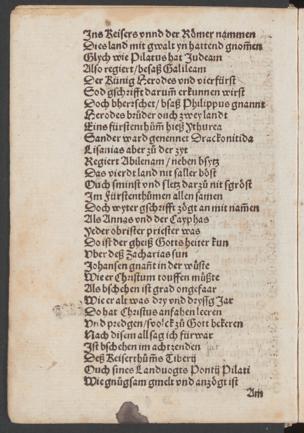 Ins Keisers vnnd der Römer nammen
Dies land mit gwalt yn hattend gnom̃en
Glych wie Pilatus hat Judeam
Also regiert / besaß Galileam
Der Künig Herodes vnd vierfürst
So d gschrifft darum̃ erkunnen wirst
Doch bherschet / bsaß Philippus gnannt
Herodes brüder ouch zwey landt
Eins fürstenthům hieß Ythurea
Sander ward genennet Drackonitida
Lisanias aber zů der zyt
Regiert Abilenam / neben bsytz
Das vierdt land nit saller böst
Ouch sminst vnd sletz darzů nit sgröst
Im Fürstenthůmen allen samen
Doch wyter gschrifft zögt an mit nam̃en
Als Annas vnd der Cayphas
Yeder obrister priester was
Do ist der gheiß Gotts heiter kun
Vber deß Zacharias sun
Johansen gnañt in der wůste
Wie er Christum touffen můßte
Als bschehen ist grad ongefaar
Wie er alt was dry vnd dryssg Jar
Do hat Christus anfahen leeren
Vnd predgen / svolck zů Gott bekeren
Nach disem all sag ich fürwar
Ist bschehen im achtzenden jar
Deß Keiserthům̃s Tiberij
Ouch sines Landuogts Pontij Pilati
Wie gnůgsam gmelt vnd anzögt ist
Am